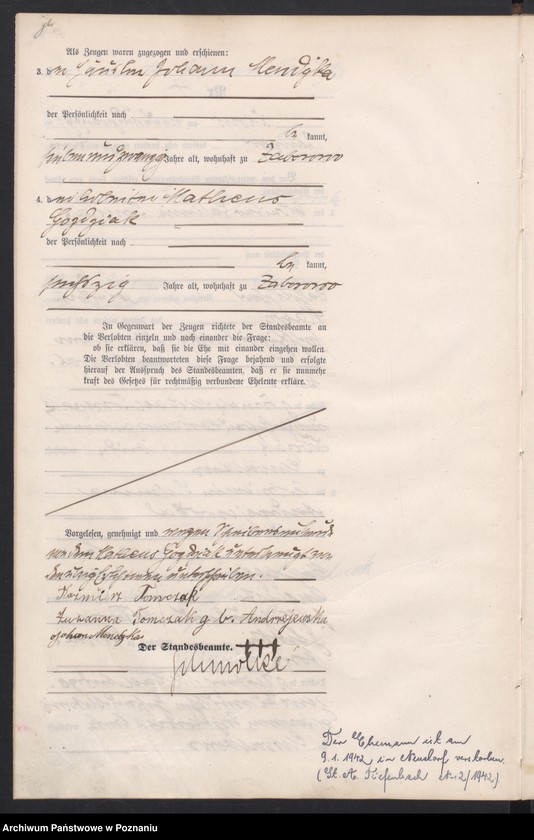 Als Zeugen waren zugezogen und erschienen:
3. Häusler Johann Mendyka
der Persönlichkeit nach
be kannt,
siebenundzwanzig Jahre alt, wohnhaft zu Zaborowo
4. Matheus
Gogdziak
der Persönlichkeit nach
be kannt,
sechszig Jahre alt, wohnhaft zu Zaborowo
In Gegenwart der Zeugen richtete der Standesbeamte an
die Verlobten einzeln und nach einander die Frage:
ob sie erklären, daß sie die Ehe mit einander eingehen wollen.
Die Verlobten beantworteten diese Frage bejahend und erfolgte
hierauf der Ausspruch des Standesbeamten, daß er sie nunmehr
kraft des Gesetzes für rechtmäßig verbundene Eheleute erkläre.
Vorgelesen, genehmigt und wegen Schreibensunkunde
von dem Matheus Gogdziak unterkreuzt von
den übrigen unterschrieben.
Kazmierz Tomczak
Zuzanna Tomczak g b. Andrzejewska
Johann Mendyka
Der Standesbeamte. +++
Der Ehemann ist am
9.1.1942 in Neudorf verstorben.
(St. A. Tiefenbach Nr. 2/1942)
Archiwum Państwowe w Poznaniu